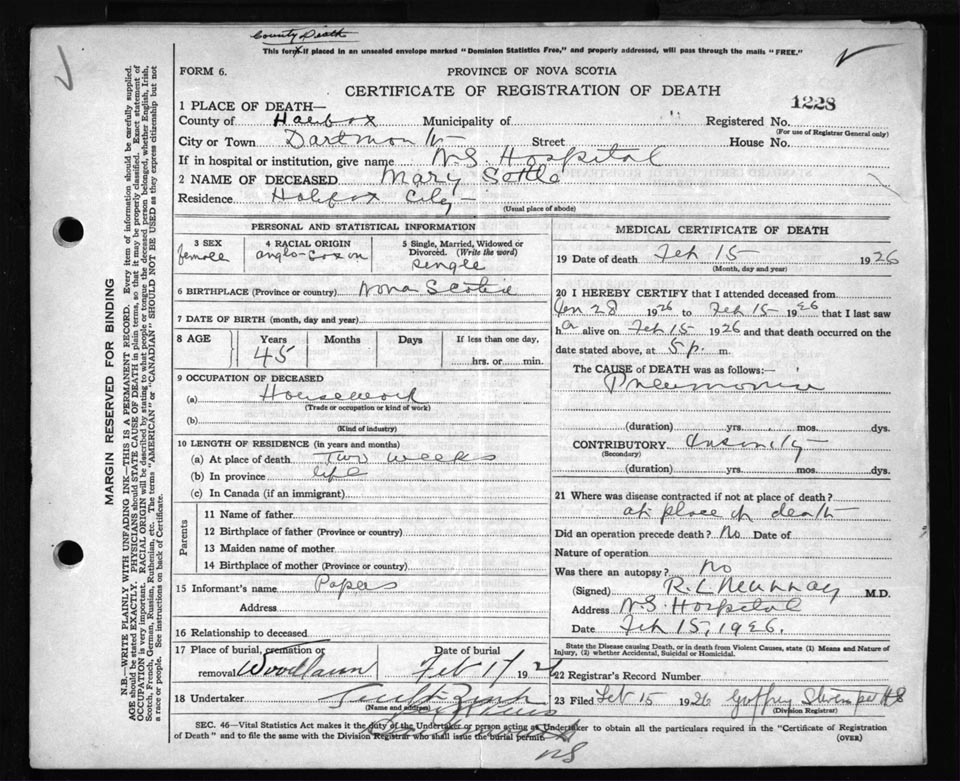 County Death
This form if placed in an unsealed envelope marked "Dominion Statistics Free," and properly addressed, will pass through the mails "FREE."
FORM 6.
PROVINCE OF NOVA SCOTIA
CERTIFICATE OF REGISTRATION OF DEATH
1228
1 PLACE OF DEATH—
County of Halifax Municipality of Registered No.
(For use of Registrar General only)
City or Town Dartmouth Street House No.
If in hospital or institution, give name N.S. Hospital
2 NAME OF DECEASED Mary Sottle
Residence Halifax City
(Usual place of abode)
PERSONAL AND STATISTICAL INFORMATION
3 SEX
female
4 RACIAL ORIGIN
anglo-saxon
5 Single, Married, Widowed or Divorced. (Write the word)
single
6 BIRTHPLACE (Province or country) Nova Scotia
7 DATE OF BIRTH (month, day and year)
8 AGE Years Months Days If less than one day,
45 hrs. or min.
9 OCCUPATION OF DECEASED
(a) Housework
(Trade or occupation or kind of work)
(b)
(Kind of industry)
10 LENGTH OF RESIDENCE (in years and months)
(a) At place of death Two weeks
(b) In province life
(c) In Canada (if an immigrant)
Parents
11 Name of father
12 Birthplace of father (Province or country)
13 Maiden name of mother
14 Birthplace of mother (Province or country)
15 Informant's name Papers
Address
16 Relationship to deceased
17 Place of burial, cremation or Date of burial
removal Woodlawn Feb 17 1926
18 Undertaker
(Name and address)
MEDICAL CERTIFICATE OF DEATH
19 Date of death Feb 15 1926
(Month, day and year)
20 I HEREBY CERTIFY that I attended deceased from
Jan 28 1926 to Feb 15 1926 that I last saw
h alive on Feb 15 1926 and that death occurred on
date stated above, at 5 p. m.
The CAUSE of DEATH was as follows:—
Pneumonia
(duration) yrs. mos. dys.
CONTRIBUTORY Insanity
(Secondary)
(duration) yrs. mos. dys.
21 Where was disease contracted if not at place of death?
at place of death
Did an operation precede death? No Date of
Nature of operation
Was there an autopsy? no
(Signed) R. L. M.D.
Address N.S. Hospital
Date Feb 15, 1926.
State the Disease causing Death, or in death from Violent Causes, state (1) Means and Nature of Injury, (2) whether Accidental, Suicidal or Homicidal.
22 Registrar's Record Number
23 Filed Feb 15 1926
(Division Registrar)
SEC. 46—Vital Statistics Act makes it the duty of the Undertaker or person acting as Undertaker to obtain all the particulars required in the "Certificate of Registration
of Death" and to file the same with the Division Registrar who shall issue the burial permit
NS
(OVER)
MARGIN RESERVED FOR BINDING
N.B.—WRITE PLAINLY WITH UNFADING INK—THIS IS A PERMANENT RECORD. Every item of information should be carefully supplied.
AGE should be stated EXACTLY. PHYSICIANS should STATE CAUSE OF DEATH in plain terms, so that it may be properly classified. Exact statement of
OCCUPATION is very important. RACIAL ORIGIN will be described by stating to what people or tongue the deceased person belonged, whether English, Irish,
Scotch, French, German, Russian, Ruthenian, etc. The terms "AMERICAN" or "CANADIAN" SHOULD NOT BE USED as they express citizenship but not
a race or people. See instructions on back of Certificate.